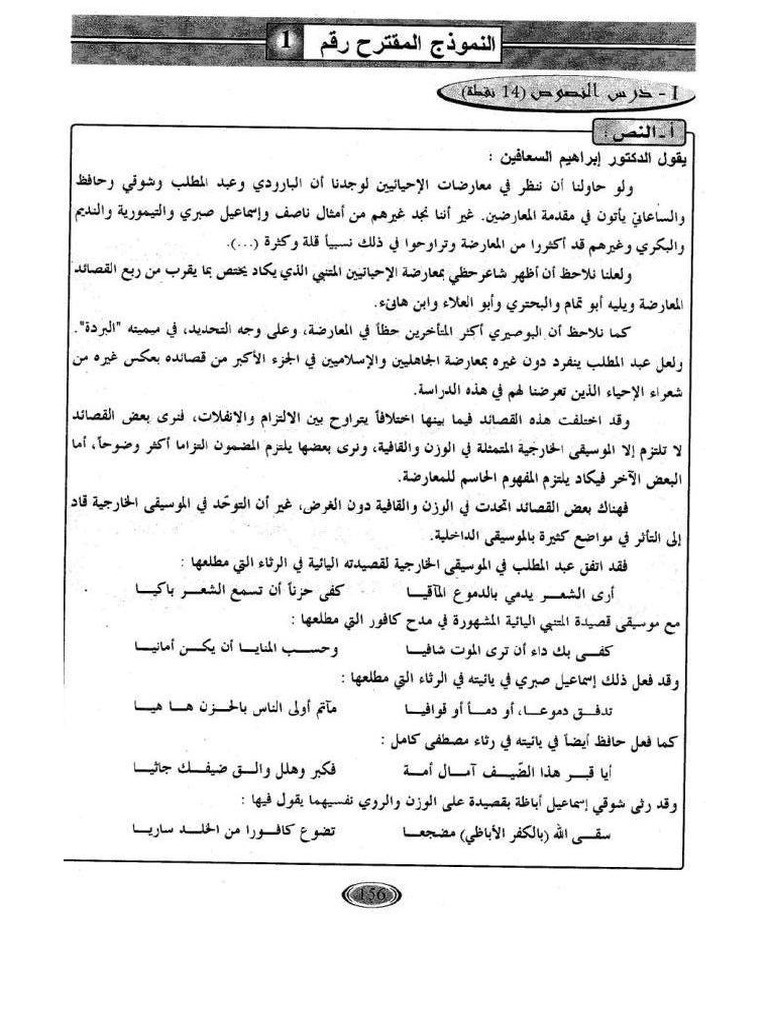 النموذج المقترح رقم 1
I - درس النصوص (14 نقطة)
أ - النص :
يقول الدكتور إبراهيم السعافين :
ولو حاولنا أن ننظر في معارضات الإحيائيين لوجدنا أن البارودي وعبد المطلب وشوقي وحافظ
والساعاتي يأتون في مقدمة المعارضين. غير أننا نجد غيرهم من أمثال ناصف وإسماعيل صبري والتيمورية والنديم
والبكري وغيرهم قد أكثروا من المعارضة وتراوحوا في ذلك نسبياً قلة وكثرة (...).
ولعلنا نلاحظ أن أظهر شاعرحظي بمعارضة الإحيائيين المتنبي الذي يكاد يختص بما يقرب من ربع القصائد
المعارضة ويليه أبو تمام والبحتري وأبو العلاء وابن هانىء.
كما نلاحظ أن البوصيري أكثر المتأخرين حظاً في المعارضة، وعلى وجه التحديد، في ميميته "البردة".
ولعل عبد المطلب ينفرد دون غيره بمعارضة الجاهليين والإسلاميين في الجزء الأكبر من قصائده بعكس غيره من
شعراء الإحياء الذين تعرضنا لهم في هذه الدراسة.
وقد اختلفت هذه القصائد فيما بينها اختلافاً يتراوح بين الالتزام والانفلات، فنرى بعض القصائد
لا تلتزم إلا الموسيقى الخارجية المتمثلة في الوزن والقافية، ونرى بعضها يلتزم المضمون التزاما أكثر وضوحاً، أما
البعض الآخر فيكاد يلتزم المفهوم الحاسم للمعارضة.
فهناك بعض القصائد اتحدت في الوزن والقافية دون الغرض، غير أن التوحّد في الموسيقى الخارجية قاد
إلى التأثر في مواضع كثيرة بالموسيقى الداخلية.
فقد اتفق عبد المطلب في الموسيقى الخارجية لقصيدته اليائية في الرثاء التي مطلعها :
أرى الشعــر يدمي بالدموع المآقيـا كفى حزناً أن تسمع الشعـر باكيـا
مع موسيقى قصيدة المتنبي اليائية المشهورة في مدح كافور التي مطلعها :
كفـى بك داء أن ترى الموت شافيـا وحسب المنايـا أن يكـن أمانيـا
وقد فعل ذلك إسماعيل صبري في يائيته في الرثاء التي مطلعها :
تدفـق دموعـا، أو دمـاً أو قوافيـا مآتم أولى الناس بالحـزن هـا هيـا
كما فعل حافظ أيضاً في يائيته في رثاء مصطفى كامل :
أيا قـبر هذا الضّيـف آمـال أمـة فكبر وهلل والـق ضيفـك جاثيـا
وقد رثى شوقي إسماعيل أباظة بقصيدة على الوزن والروي نفسيهما يقول فيها :
سقـى الله (بالكفر الأباظي) مضجعـا تضوع كافـورا من الخلـد ساريـا
156